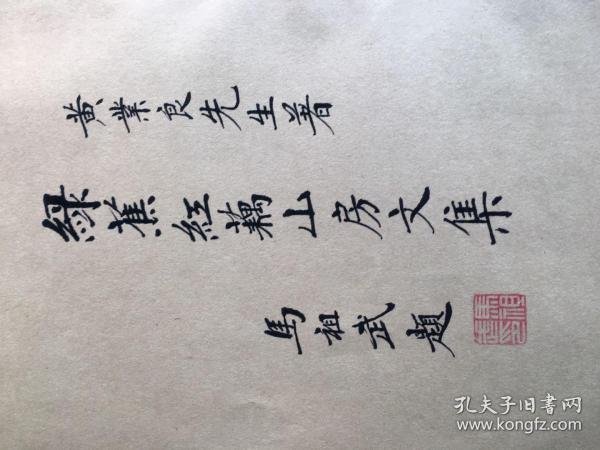 黄業良先生著
綠蕉紅藕山房文集
馬祖武題
孔夫子旧书网
www.kongfz.com